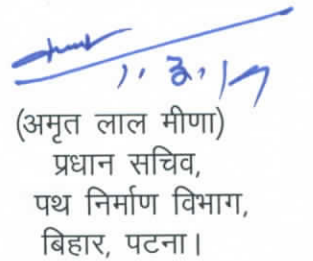 1.3.17
(अमृत लाल मीणा)
प्रधान सचिव,
पथ निर्माण विभाग,
बिहार, पटना।